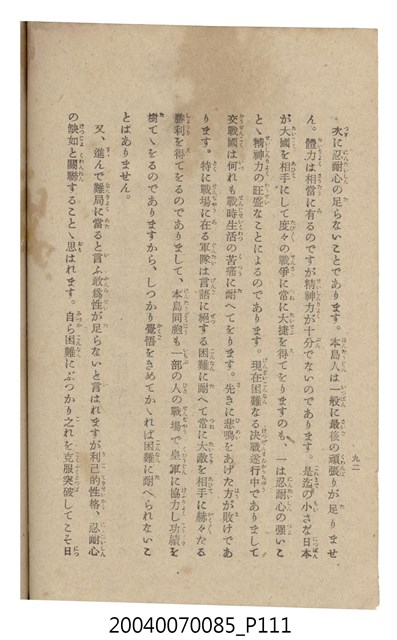 九二
次に忍耐心の足らないことであります。本島人は一般に最後の頑張りが足りませ
ん。體力は相當に有るのですが精神力が十分でないのであります。是迄の小さな日本
が大國を相手にして度々の戰爭に常に大捷を得てをりますのも、一は忍耐心の强いこ
とゝ精神力の旺盛なことによるのであります。現在困難なる決戰遂行中でありまして
交戰國は何れも戰時生活の苦痛に耐へてをります。先きに悲鳴をあげた方が敗けであ
ります。特に戰場に在る軍隊は言語に絕する困難に耐へて常に大敵を相手に赫々たる
勝利を得てをるのでありまして、本島同胞も一部の人の戰場で皇軍に協力し功績を
樹てゝをるのでありますから、しつかり覺悟をきめてかゝれば困難に耐へられないこ
とはありません。
又、進んで難局に當ると言ふ敢爲性が足らないと言はれますが利己的性格、忍耐心
の缺如と關聯することゝ思はれます。自ら困難にぶつかり之れを克服突破してこそ日
20040070085_P111